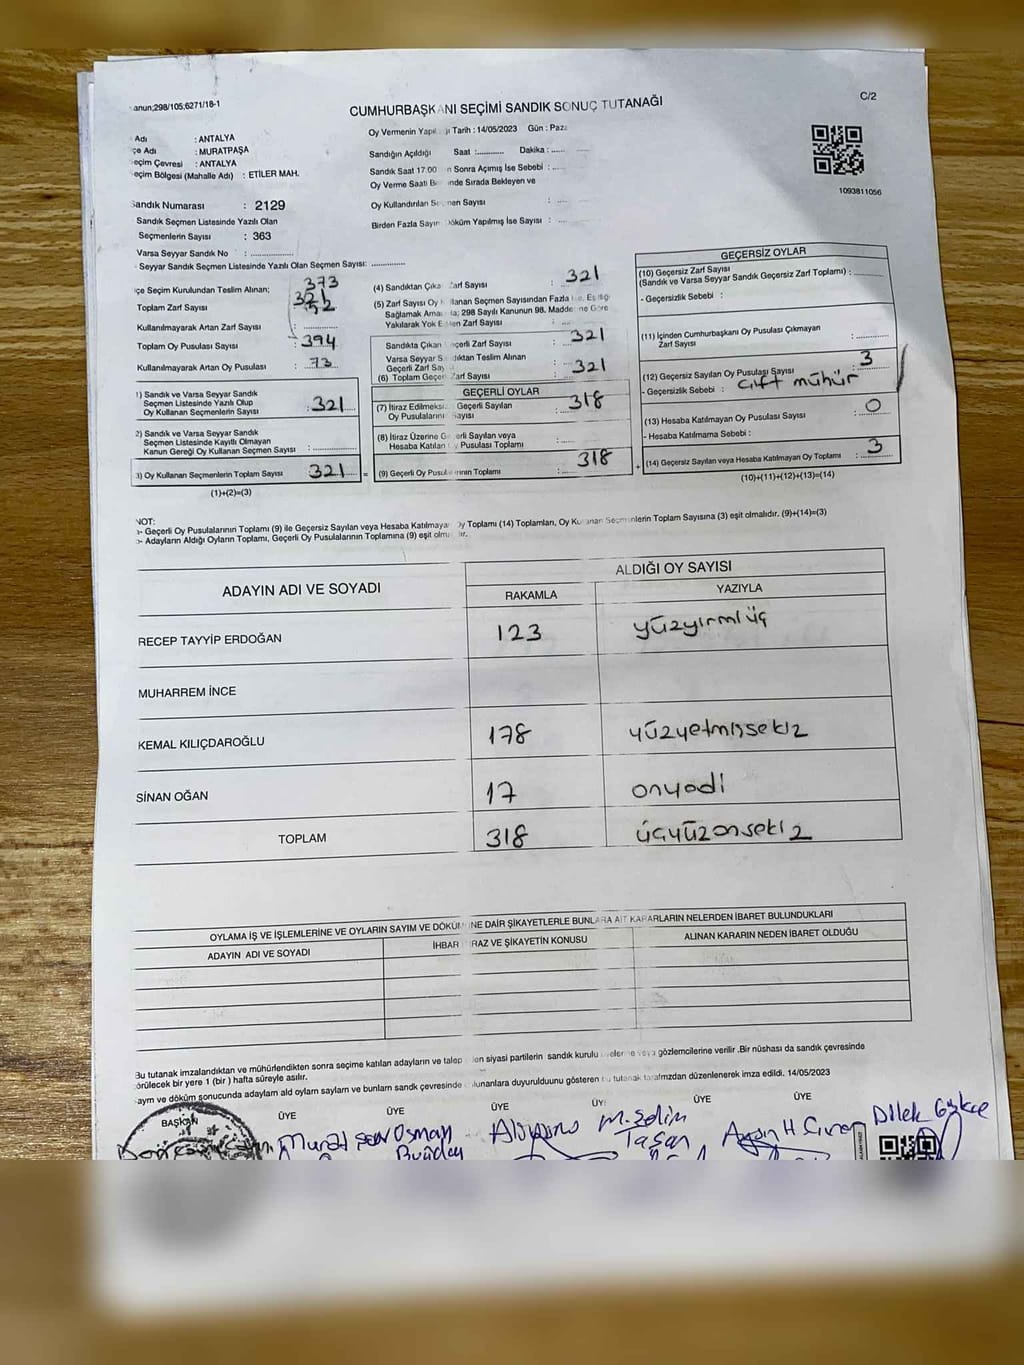 anun;298/105;6271/18-1
CUMHURBAŞKANI SEÇİMİ SANDIK SONUÇ TUTANAĞI
C/2
Adı : ANTALYA
çe Adı : MURATPAŞA
eçim Çevresi : ANTALYA
eçim Bölgesi (Mahalle Adı) : ETİLER MAH.
Oy Vermenin Yapıl Tarih : 14/05/2023 Gün : Paza
Sandığın Açıldığı Saat :.......... Dakika :......
Sandık Saat 17.00 n Sonra Açımış İse Sebebi :
Oy Verme Saati B nde Sırada Bekleyen ve
Oy Kullandırılan Seçmen Sayısı :
Birden Fazla Sayım Döküm Yapılmış İse Sayısı :
1093811056
Sandık Numarası : 2129
Sandık Seçmen Listesinde Yazılı Olan
Seçmenlerin Sayısı : 363
Varsa Seyyar Sandık No :
Seyyar Sandık Seçmen Listesinde Yazılı Olan Seçmen Sayısı:
çe Seçim Kurulundan Teslim Alınan; 373
Toplam Zarf Sayısı : 321 52
Kullanılmayarak Artan Zarf Sayısı :
Toplam Oy Pusulası Sayısı : 394
Kullanılmayarak Artan Oy Pusulası : 73
1) Sandık ve Varsa Seyyar Sandık
Seçmen Listesinde Yazılı Olup
Oy Kullanan Seçmenlerin Sayısı : 321
2) Sandık ve Varsa Seyyar Sandık
Seçmen Listesinde Kayıtlı Olmayan
Kanun Gereği Oy Kullanan Seçmen Sayısı :
3) Oy Kullanan Seçmenlerin Toplam Sayısı 321 =
(1)+(2)=(3)
(4) Sandıktan Çıkan Zarf Sayısı : 321
(5) Zarf Sayısı Oy Kullanan Seçmen Sayısından Fazla İse, Eşitliği
Sağlamak Amacıyla; 298 Sayılı Kanunun 98. Maddesine Göre
Yakılarak Yok Edilen Zarf Sayısı :
Sandıkta Çıkan Geçerli Zarf Sayısı : 321
Varsa Seyyar Sandıktan Teslim Alınan
Geçerli Zarf Say
(6) Toplam Geçerli Zarf Sayısı : 321
GEÇERLİ OYLAR
(7) İtiraz Edilmeksizin Geçerli Sayılan
Oy Pusulalarının Sayısı : 318
(8) İtiraz Üzerine Geçerli Sayılan veya
Hesaba Katılan Oy Pusulası Toplamı :
(9) Geçerli Oy Pusulalarının Toplamı : 318 +
GEÇERSİZ OYLAR
(10) Geçersiz Zarf Sayısı
(Sandık ve Varsa Seyyar Sandık Geçersiz Zarf Toplamı) :
- Geçersizlik Sebebi :
(11) İçinden Cumhurbaşkanı Oy Pusulası Çıkmayan
Zarf Sayısı :
(12) Geçersiz Sayılan Oy Pusulası Sayısı : 3
- Geçersizlik Sebebi : Çift mühür
(13) Hesaba Katılmayan Oy Pusulası Sayısı : 0
- Hesaba Katılmama Sebebi :
(14) Geçersiz Sayılan veya Hesaba Katılmayan Oy Toplamı : 3
(10)+(11)+(12)+(13)=(14)
NOT:
- Geçerli Oy Pusulalarının Toplamı (9) ile Geçersiz Sayılan veya Hesaba Katılmayan Oy Toplamı (14) Toplamları, Oy Kullanan Seçmenlerin Toplam Sayısına (3) eşit olmalıdır. (9)+(14)=(3)
- Adayların Aldığı Oyların Toplamı, Geçerli Oy Pusulalarının Toplamına (9) eşit olmalıdır.
ADAYIN ADI VE SOYADI
ALDIĞI OY SAYISI
RAKAMLA YAZIYLA
RECEP TAYYİP ERDOĞAN 123 yüzyirmiüç
MUHARREM İNCE
KEMAL KILIÇDAROĞLU 178 yüzyetmişsekiz
SİNAN OĞAN 17 onyedi
TOPLAM 318 üçyüzonsekiz
OYLAMA İŞ VE İŞLEMLERİNE VE OYLARIN SAYIM VE DÖKÜMÜNE DAİR ŞİKAYETLERLE BUNLARA AİT KARARLARIN NELERDEN İBARET BULUNDUKLARI
ADAYIN ADI VE SOYADI İHBAR İTİRAZ VE ŞİKAYETİN KONUSU ALINAN KARARIN NEDEN İBARET OLDUĞU
Bu tutanak imzalandıktan ve mühürlendikten sonra seçime katılan adayların ve talep eden siyasi partilerin sandık kurulu üyelerine veya gözlemcilerine verilir .Bir nüshası da sandık çevresinde
görülecek bir yere 1 (bir ) hafta süreyle asılır.
ayım ve döküm sonucunda adayların aldı oyların sayıların ve bunların sandık çevresinde bulunanlara duyurulduunu gösteren bu tutanak tarafımızdan düzenlenerek imza edildi. 14/05/2023
BAŞKAN ÜYE ÜYE ÜYE ÜYE ÜYE ÜYE
Murat Osman M. Selim Dilek Gökçe
Buğday Taşan